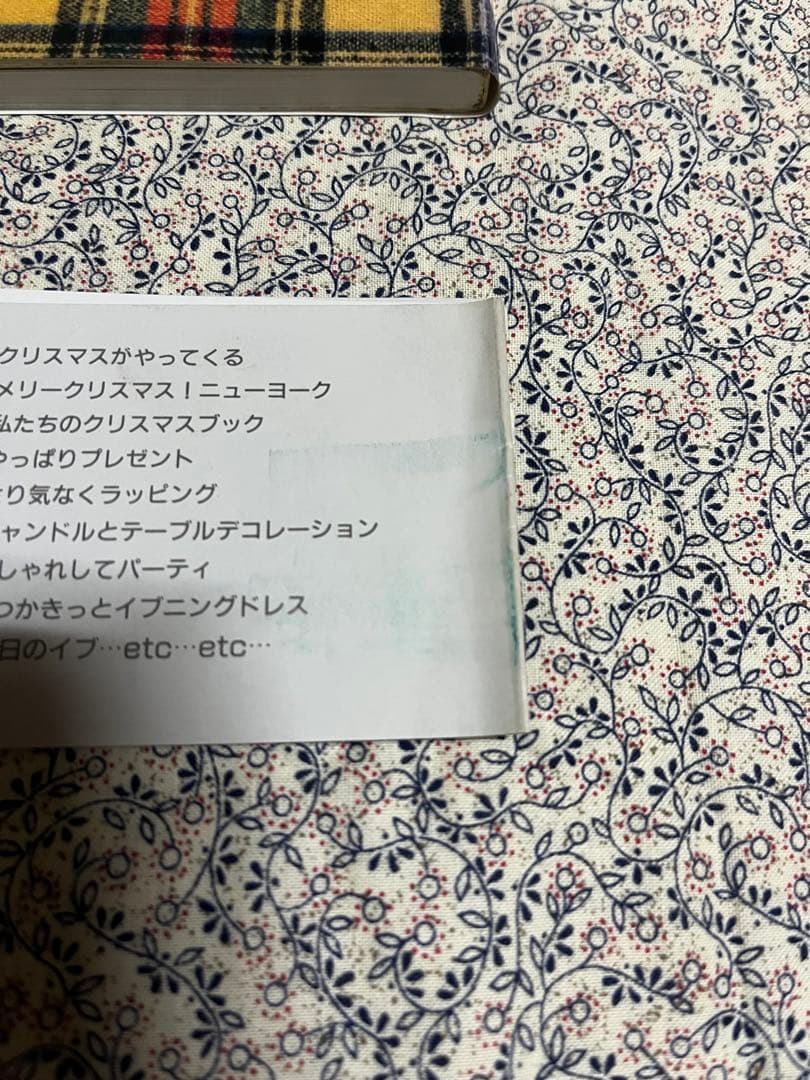 クリスマスがやってくる
メリークリスマス！ニューヨーク
私たちのクリスマスブック
やっぱりプレゼント
さり気なくラッピング
ャンドルとテーブルデコレーション
しゃれしてパーティ
つかきっとイブニングドレス
日のイブ…etc…etc…